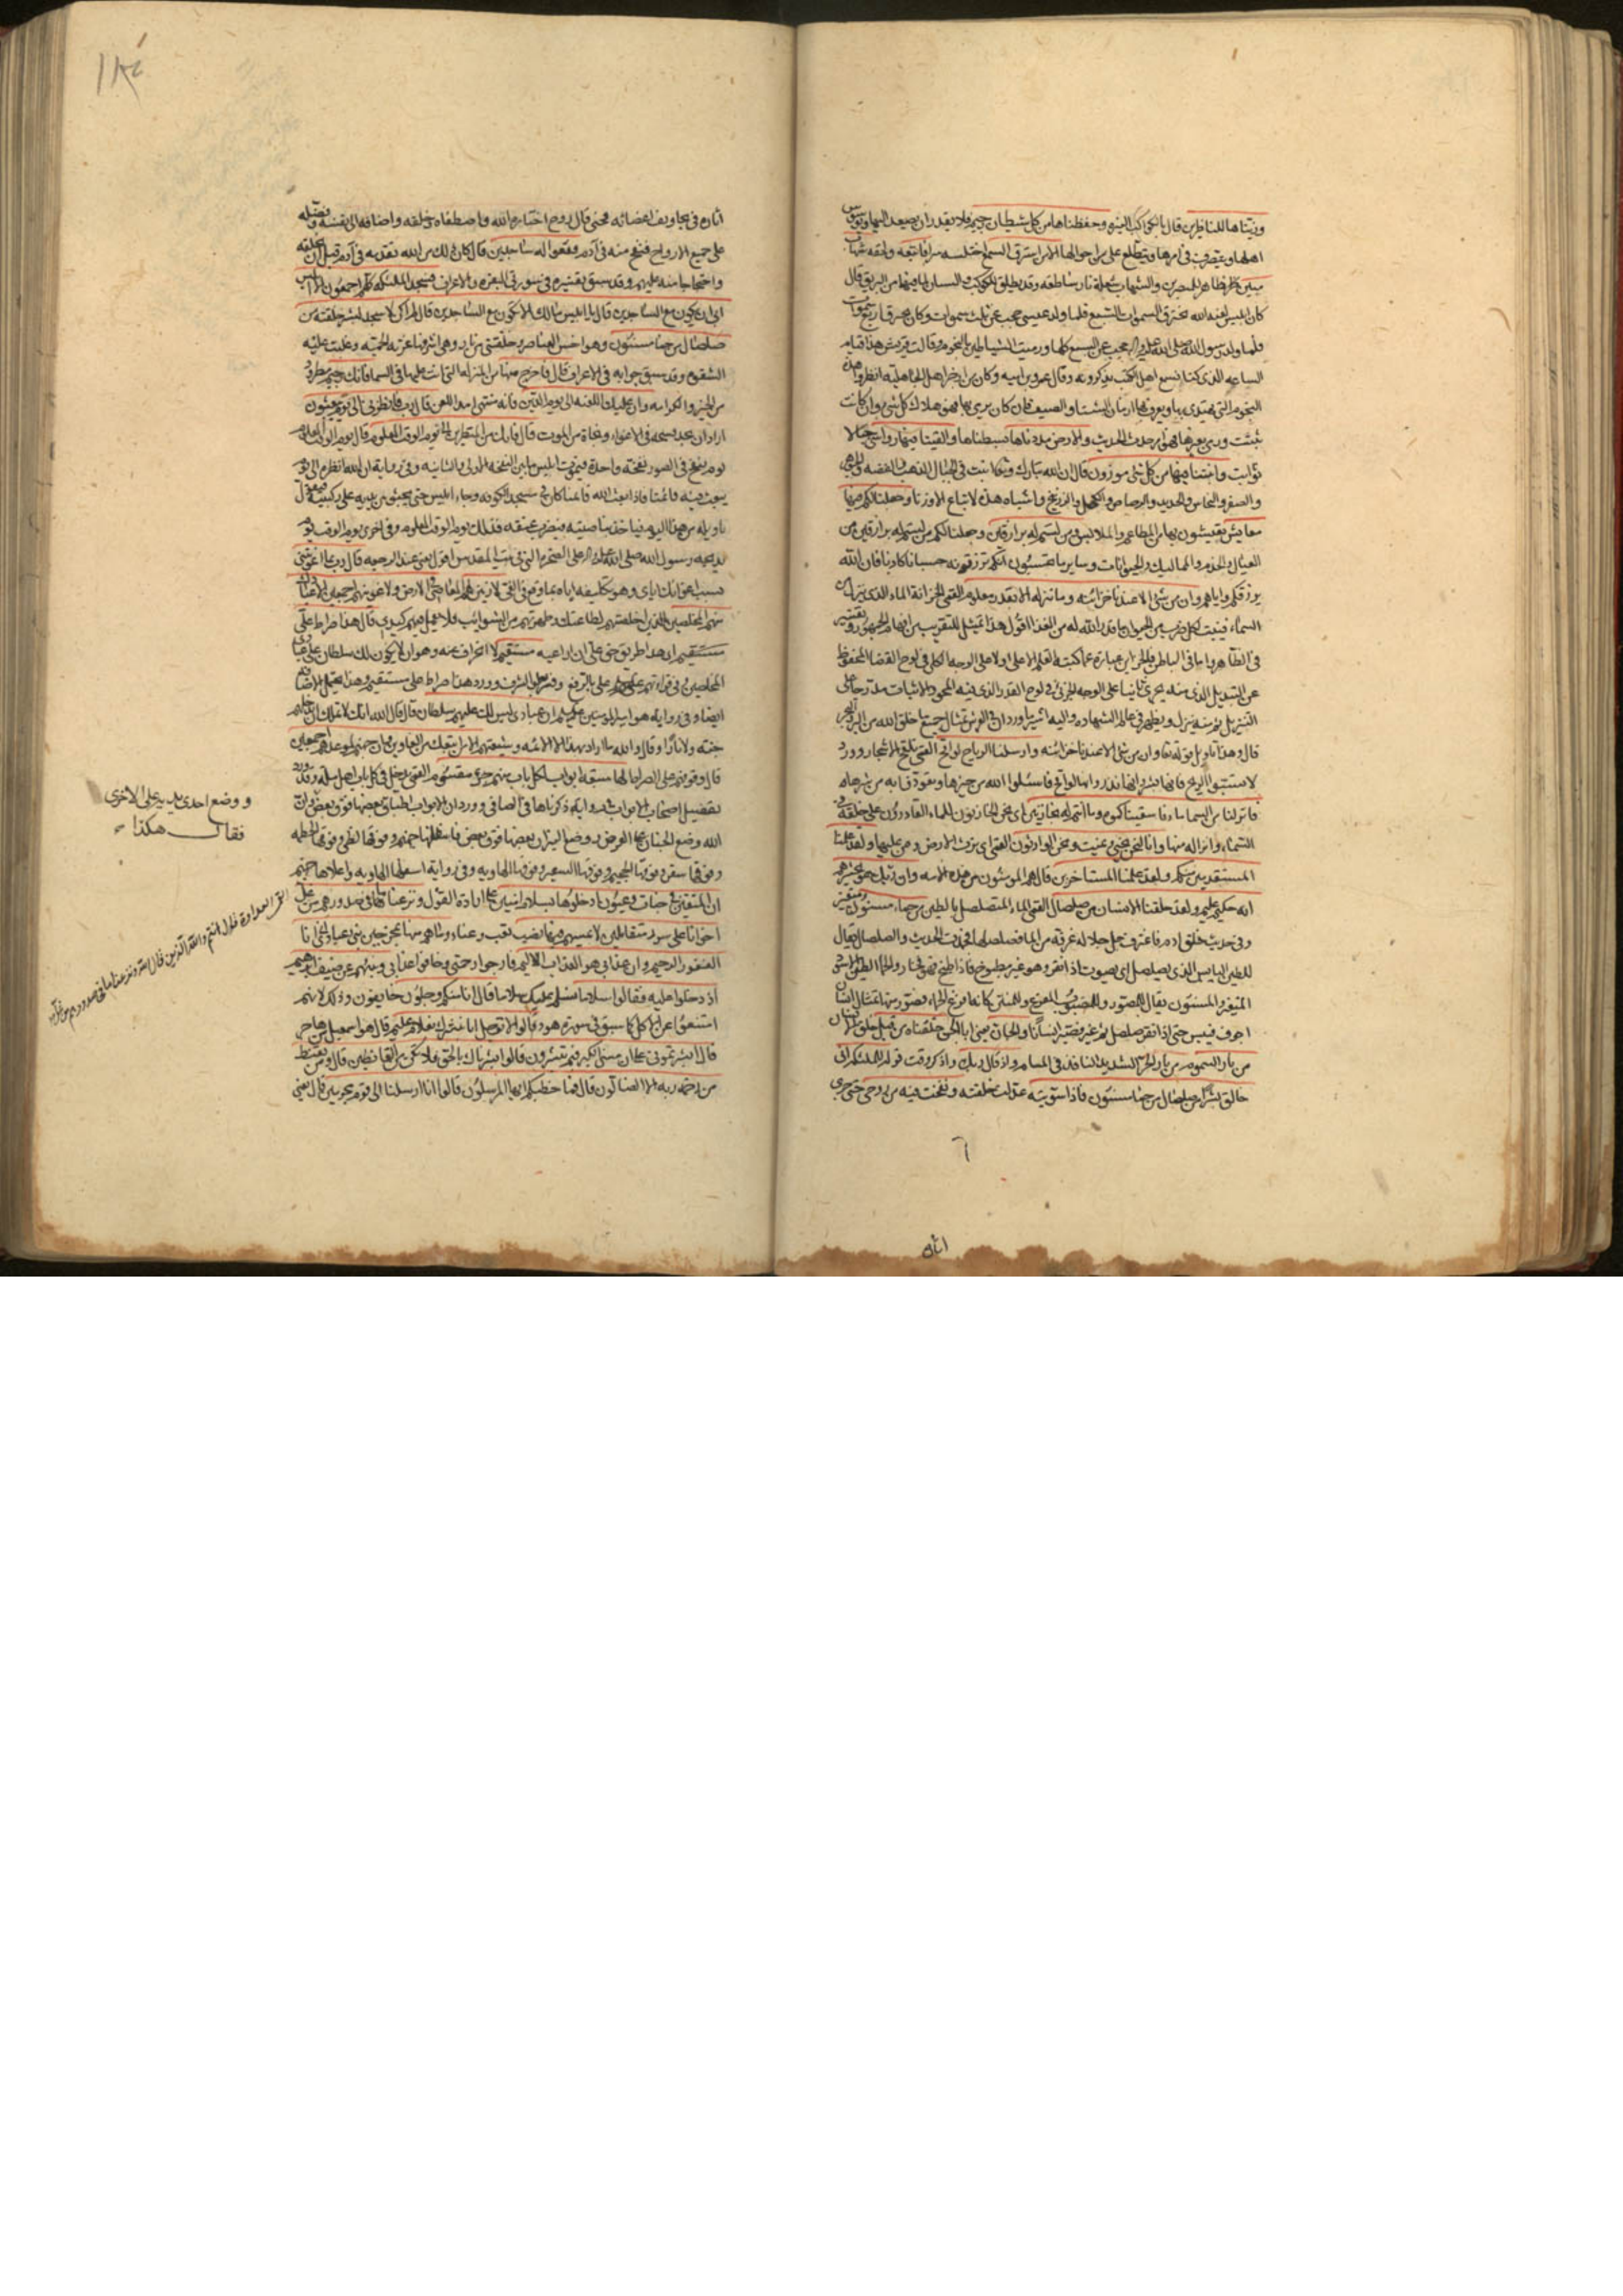 وزيناها للناظرين قال بالكواكب النيرة وحفظناها من كل شيطان رجيم فلا يقدر ان يصعد اليها ويوسوس
اهلها ويتصرف في امرها ويتطلع على احوالها الا من استرق السمع اختلسه سرا فاتبعه ولحقه شهاب
مبين ظاهر للمبصرين والشهاب شعلة نار ساطعة وقد يطلق للكوكب والسنان لما فيهما من البريق قال
كان ابليس لعنه الله يخترق السموات السبع فلما ولد عيسى حجب عن ثلث سموات وكان يخترق اربع سموات
فلما ولد رسول الله صلى الله عليه واله حجب عن السبع كلها ورميت الشياطين بالنجوم وقالت قريش هذا قيام
الساعة الذي كنا نسمع اهل الكتب يذكرونه وقال عمرو بن امية وكان من ازجر اهل الجاهلية انظروا هذه
النجوم التي يهتدى بها ويعرف بها ازمان الشتا والصيف فان كان يرمى بها فهو هلاك كل شئ وان كانت
ثبتت ورمى بغيرها فهو امر حدث الحديث والارض مددناها بسطناها والقينا فيها رواسي جبالا
ثوابت وانبتنا فيها من كل شئ موزون قال ان الله تبارك وتعالى انبت في الجبال الذهب والفضة والجوهر
والصفر والنحاس والحديد والرصاص والكحل والزرنيخ واشباه هذه لا تباع الا وزنا وجعلنا لكم فيها
معايش تعيشون بها من المطاعم والملابس ومن لستم له برازقين وجعلنا لكم من لستم له برازقين من
العيال والخدم والمماليك والحيوانات وساير ما تحسبون انكم ترزقونه حسبانا كاذبا فان الله
يرزقكم واياهم وان من شئ الا عندنا خزائنه وما ننزله الا بقدر معلوم القمي الخزانة الماء الذي ينزل من
السماء فينبت لكل ضرب من الحيوان ما قدر الله له من الغذا اقول هذا تمثيل للتقريب من افهام الجمهور وتفسير
في الظاهر واما في الباطن فالخزاين عبارة عما كتبه القلم الاعلى اولا على الوجه الكلي في لوح القضا المحفوظ
عن التبديل الذي منه يجري ثانيا على الوجه الجزئي في لوح القدر الذي فيه المحو والاثبات مدرجا على
التنزيل ثم منه ينزل ويظهر في عالم الشهادة واليه اشير ما ورد ان في العرش تمثال جميع ما خلق الله من البر والبحر
قال وهذا تاويل قوله تعالى وان من شئ الا عندنا خزائنه وارسلنا الرياح لواقح القمي تلقح الاشجار وورد
لا تسبوا الريح فانها بشر وانها نذر وانها لواقح فاسئلوا الله من خيرها وتعوذوا به من شرها
فانزلنا من السماء ماء فاسقيناكموه وما انتم له بخازنين اي نحن الخازنون للماء القادرون على خلقه في
السماء وانزاله منها وانا لنحن نحيي ونميت ونحن الوارثون القمي اي نرث الارض ومن عليها ولقد علمنا
المستقدمين منكم ولقد علمنا المستاخرين قال هم المومنون من هذه الامة وان ربك هو يحشرهم
انه حكيم عليم ولقد خلقنا الانسان من صلصال القمي الماء المتصلصل بالطين من حماء مسنون متغير
وفي حديث خلق ادم فاغترف جل جلاله غرفة من الماء فصلصلها فجمدت الحديث والصلصال يقال
للطين اليابس الذي يصلصل اي يصوت اذا نقر وهو غير مطبوخ فاذا طبخ فهو فخار والحماء الطين الاسود
المتغير والمسنون يقال للمصور وللمصبوب المفرغ وللمنتن كانه افرغ الحماء فصور منها تمثال انسان
اجوف فيبس حتى اذا نقر صلصل ثم غير فصير انسانا والجان يعني ابا الجن خلقناه من قبل خلق الانسان
من نار السموم من نار الحر الشديد النافذ في المسام واذ قال ربك واذكر وقت قوله للملئكة اني
خالق بشرا من صلصال من حماء مسنون فاذا سويته عدلت خلقته ونفخت فيه من روحي حتى جرى
اثاره
اثاره في تجاويف اعضائه فحيى قال روح اختاره الله واصطفاه وخلقه واضافه الى نفسه وفضله
على جميع الارواح فنفخ منه في آدم فقعوا له ساجدين قال كان ذلك من الله تقدمة في آدم قبل ان يخلقه
واحتجاجا منه عليهم وقد سبق تفسيره في سورتي البقرة والاعراف فسجد الملئكة كلهم اجمعون الا ابليس
ابى ان يكون مع الساجدين قال يا ابليس مالك الا تكون مع الساجدين قال لم اكن لاسجد لبشر خلقته من
صلصال من حماء مسنون وهو اخس العناصر وخلقتني من نار وهي اشرفها غرته الحمية وغلبت عليه
الشقوة وقد سبق جوابه في الاعراف قال فاخرج منها من المنزلة التي انت عليها في السما فانك رجيم مطرود
من الخير والكرامة وان عليك اللعنة الى يوم الدين فانه منتهى امد اللعن قال رب فانظرني الى يوم يبعثون
اراد ان يجد فسحة في الاغواء ونجاة من الموت قال فانك من المنظرين الى يوم الوقت المعلوم قال يوم الوقت المعلوم
يوم ينفخ في الصور نفخة واحدة فيموت ابليس ما بين النفخة الاولى والثانية وفي رواية ان الله انظره الى يوم
يبعث فيه قائمنا فاذا بعث الله قائمنا كان في مسجد الكوفة وجاء ابليس حتى يجثو بين يديه على ركبتيه فيقول
يا ويله من هذا اليوم فياخذ بناصيته فيضرب عنقه فذلك يوم الوقت المعلوم وفي اخرى يوم الوقت يوم
يذبحه رسول الله صلى الله عليه واله على الصخرة التي في بيت المقدس اقول يعني عند الرجعة قال رب بما اغويتني
بسبب اغوائك اياي وهو تكليفه اياه بما وقع في الغي لازينن لهم المعاصي في الارض ولاغوينهم اجمعين الا عبادك
منهم المخلصين الذين اخلصتهم لطاعتك وطهرتهم من الشوائب فلا يعمل فيهم كيدي قال هذا صراط علي
مستقيم اي هذا طريق حق علي ان اراعيه مستقيم لا انحراف عنه وهو ان لا يكون لك سلطان على عبادي
جنة ولا نارا وقال والله ما اراد بهذا الا الائمة وشيعتهم الا من اتبعك من الغاوين وان جهنم لموعدهم اجمعين
الله وضع الجنان على العرض ووضع النيران بعضها فوق بعض فاسفلها جهنم وفوقها لظى وفوقها الحطمة
وفوقها سقر وفوقها الجحيم وفوقها السعير وفوقها الهاوية وفي رواية اسفلها الهاوية واعلاها جهنم
ان المتقين في جنات وعيون ادخلوها بسلام امنين على ارادة القول ونزعنا ما في صدورهم من غل
اخوانا على سرر متقابلين لا يمسهم فيها نصب تعب وعناء وما هم منها بمخرجين نبئ عبادي اني انا
الغفور الرحيم وان عذابي هو العذاب الاليم فارجوا رحمتي وخافوا عذابي ونبئهم عن ضيف ابراهيم
اذ دخلوا عليه فقالوا سلاما نسلم عليك سلاما قال انا منكم وجلون خايفون وذلك لانهم
امتنعوا عن الاكل كما سبق في سورة هود قالوا لا توجل انا نبشرك بغلام عليم قال هو اسمعيل من هاجر
قال ابشرتموني على ان مسني الكبر فبم تبشرون قالوا بشرناك بالحق فلا تكن من القانطين قال ومن يقنط
من رحمة ربه الا الضالون قال فما خطبكم ايها المرسلون قالوا انا ارسلنا الى قوم مجرمين قال يعني
ووضع احدى يديه على الاخرى
فقال هكذا